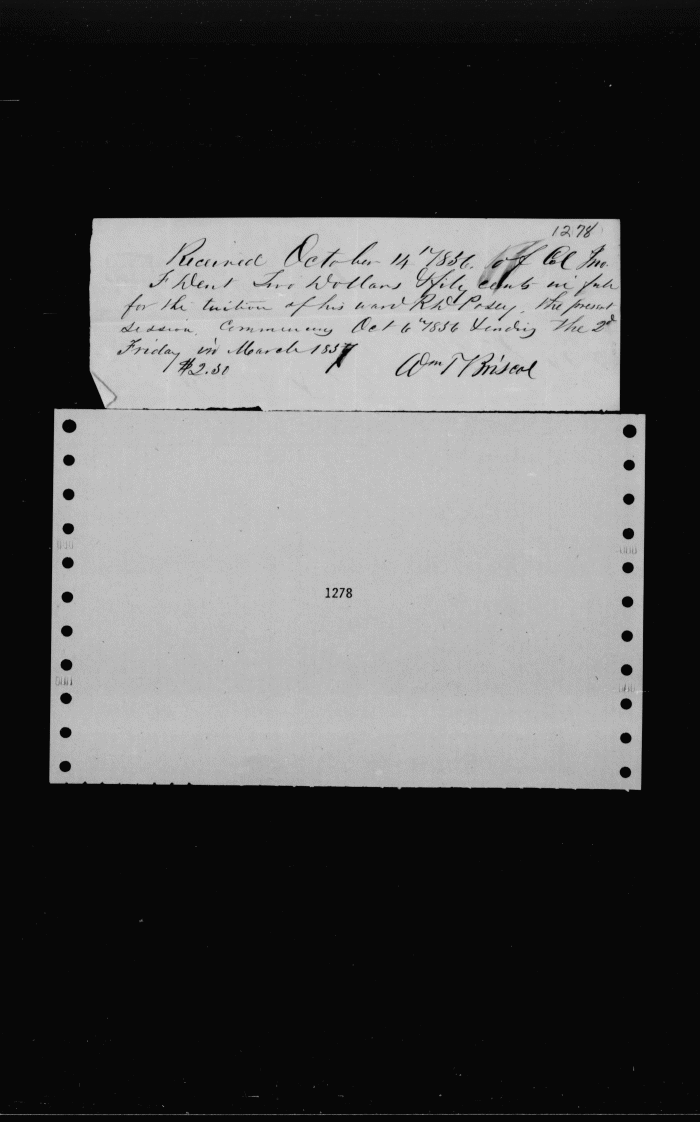 1278
Received October 14th 1856. of Col Jno.
F Dent Two Dollars & fifty cents in full
for the tuition of his ward R W Posey, the present
session. Commencing Oct 6th 1856 & ending the 2d
Friday in March 1857
$2.50 Wm T Briscoe
1278